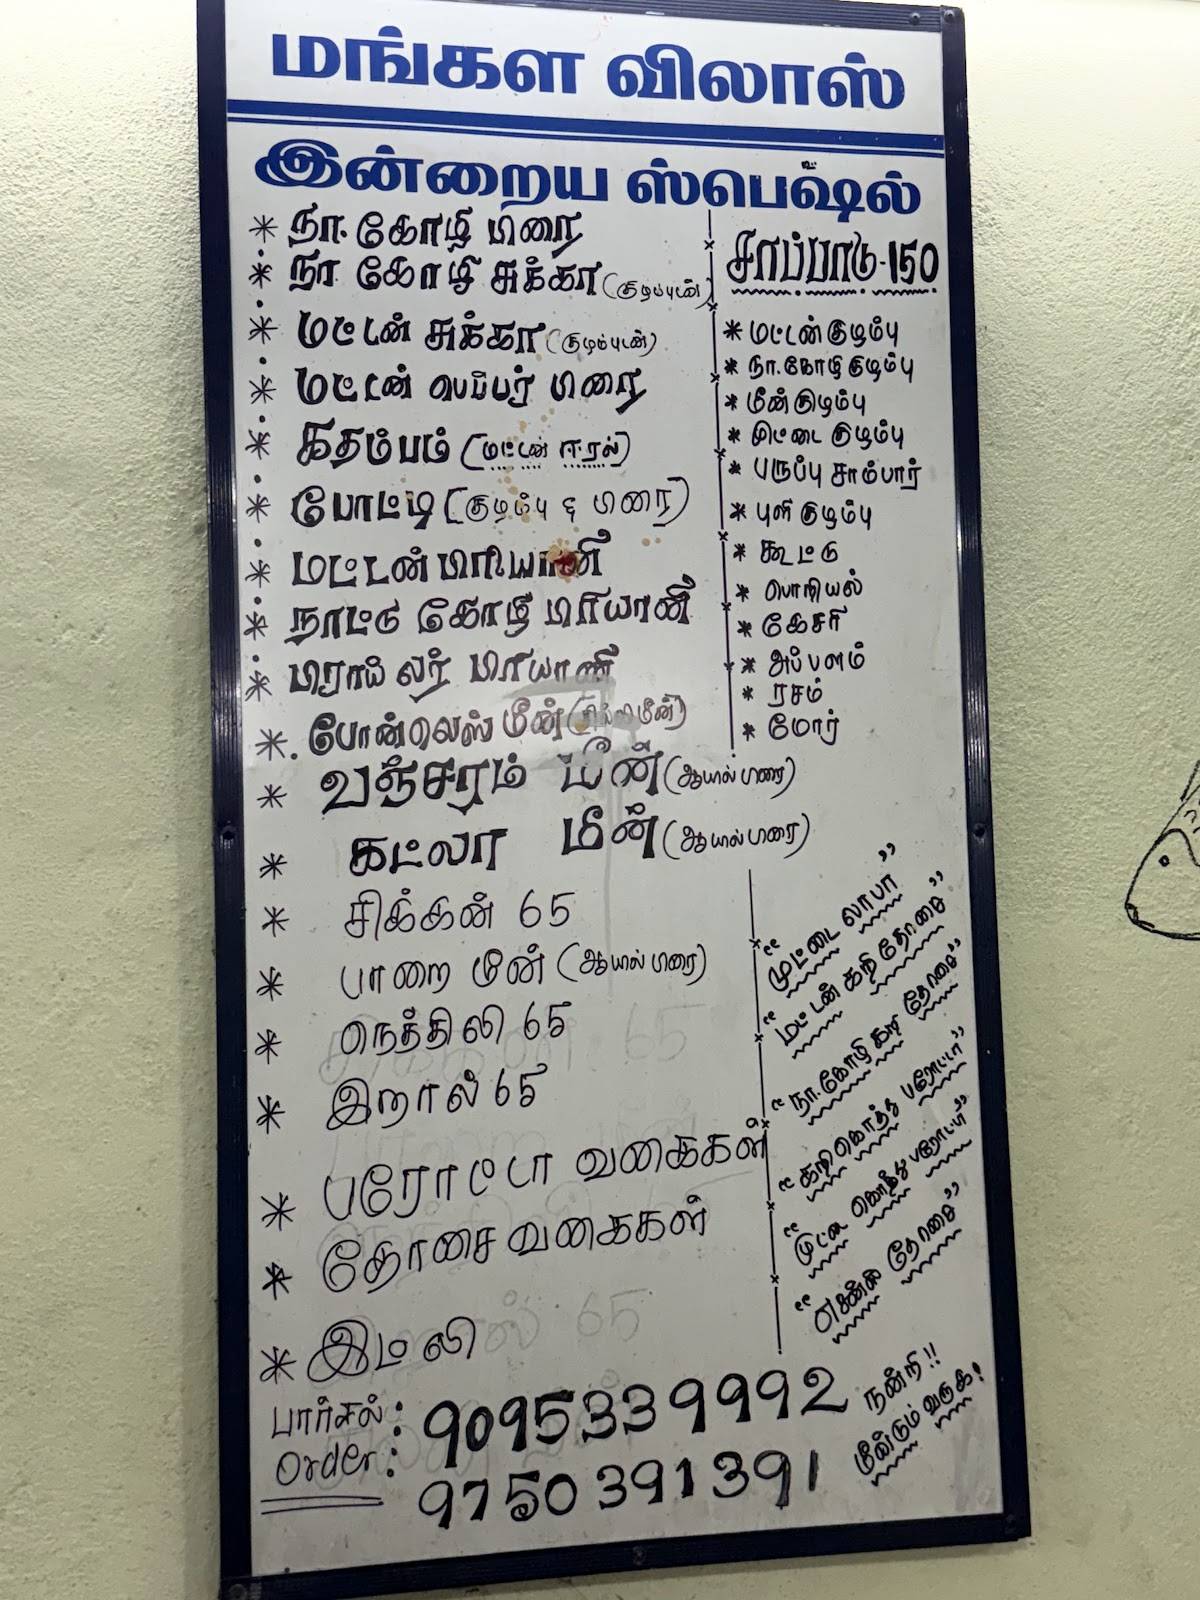 மங்கள விலாஸ்
இன்றைய ஸ்பெஷல்
* நா. கோழி பிரை
* நா. கோழி சுக்கா (குழம்புடன்)
* மட்டன் சுக்கா (குழம்புடன்)
* மட்டன் பெப்பர் பிரை
* கதம்பம் (மட்டன் ஈரல்)
* போட்டி (குழம்பு & பிரை)
* மட்டன் பிரியாணி
* நாட்டு கோழி பிரியாணி
* பிராய்லர் பிரியாணி
* போன்லெஸ் மீன்
* வஞ்சரம் மீன் (ஆயில் பிரை)
* கட்லா மீன் (ஆயில் பிரை)
* சிக்கன் 65
* பாறை மீன் (ஆயில் பிரை)
* நெத்திலி 65
* இறால் 65
* பரோட்டா வகைகள்
* தோசை வகைகள்
* இட்லி
சாப்பாடு - 150
* மட்டன் குழம்பு
* நா. கோழி குழம்பு
* மீன் குழம்பு
* முட்டை குழம்பு
* பருப்பு சாம்பார்
* புளி குழம்பு
* கூட்டு
* பொறியல்
* கேசரி
* அப்பளம்
* ரசம்
* மோர்
"முட்டை லாபா"
"மட்டன் கறி தோசை"
"நா. கோழி கறி தோசை"
"கறி கொத்து பரோட்டா"
"முட்டை கொத்து பரோட்டா"
"எண்ல் தோசை"
பார்சல் : 9095339992
Order : 9750391391
நன்றி!!
மீண்டும் வருக!